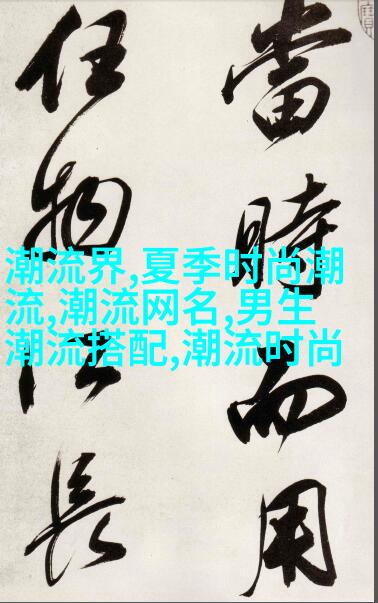 當時而用
任物長
潮流界,夏季时尚潮
流,潮流网名,男生
潮流搭配,潮流时尚